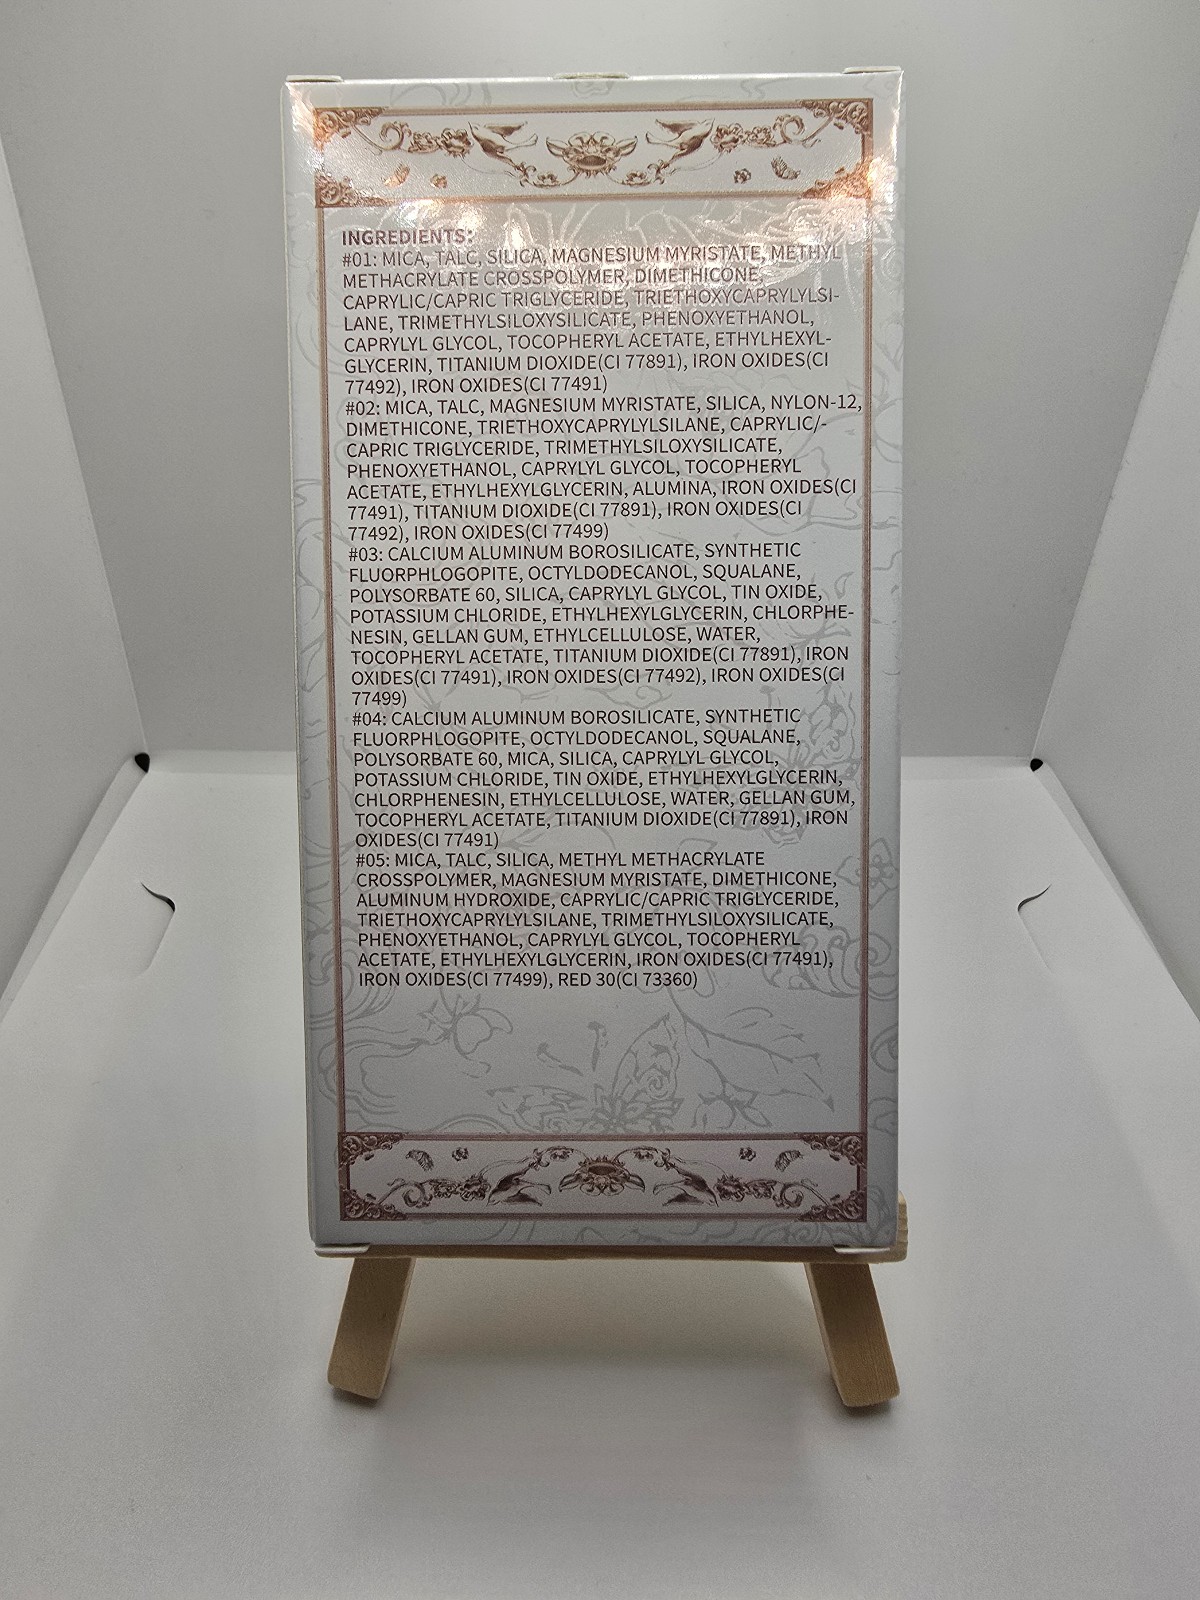 INGREDIENTS:
#01: MICA, TALC, SILICA, MAGNESIUM MYRISTATE, METHYL
METHACRYLATE CROSSPOLYMER, DIMETHICONE,
CAPRYLIC/CAPRIC TRIGLYCERIDE, TRIETHOXYCAPRYLYLSI-
LANE, TRIMETHYLSILOXYSILICATE, PHENOXYETHANOL,
CAPRYLYL GLYCOL, TOCOPHERYL ACETATE, ETHYLHEXYL-
GLYCERIN, TITANIUM DIOXIDE(CI 77891), IRON OXIDES(CI
77492), IRON OXIDES(CI 77491)
#02: MICA, TALC, MAGNESIUM MYRISTATE, SILICA, NYLON-12,
DIMETHICONE, TRIETHOXYCAPRYLYLSILANE, CAPRYLIC/-
CAPRIC TRIGLYCERIDE, TRIMETHYLSILOXYSILICATE,
PHENOXYETHANOL, CAPRYLYL GLYCOL, TOCOPHERYL
ACETATE, ETHYLHEXYLGLYCERIN, ALUMINA, IRON OXIDES(CI
77491), TITANIUM DIOXIDE(CI 77891), IRON OXIDES(CI
77492), IRON OXIDES(CI 77499)
#03: CALCIUM ALUMINUM BOROSILICATE, SYNTHETIC
FLUORPHLOGOPITE, OCTYLDODECANOL, SQUALANE,
POLYSORBATE 60, SILICA, CAPRYLYL GLYCOL, TIN OXIDE,
POTASSIUM CHLORIDE, ETHYLHEXYLGLYCERIN, CHLORPHE-
NESIN, GELLAN GUM, ETHYLCELLULOSE, WATER,
TOCOPHERYL ACETATE, TITANIUM DIOXIDE(CI 77891), IRON
OXIDES(CI 77491), IRON OXIDES(CI 77492), IRON OXIDES(CI
77499)
#04: CALCIUM ALUMINUM BOROSILICATE, SYNTHETIC
FLUORPHLOGOPITE, OCTYLDODECANOL, SQUALANE,
POLYSORBATE 60, MICA, SILICA, CAPRYLYL GLYCOL,
POTASSIUM CHLORIDE, TIN OXIDE, ETHYLHEXYLGLYCERIN,
CHLORPHENESIN, ETHYLCELLULOSE, WATER, GELLAN GUM,
TOCOPHERYL ACETATE, TITANIUM DIOXIDE(CI 77891), IRON
OXIDES(CI 77491)
#05: MICA, TALC, SILICA, METHYL METHACRYLATE
CROSSPOLYMER, MAGNESIUM MYRISTATE, DIMETHICONE,
ALUMINUM HYDROXIDE, CAPRYLIC/CAPRIC TRIGLYCERIDE,
TRIETHOXYCAPRYLYLSILANE, TRIMETHYLSILOXYSILICATE,
PHENOXYETHANOL, CAPRYLYL GLYCOL, TOCOPHERYL
ACETATE, ETHYLHEXYLGLYCERIN, IRON OXIDES(CI 77491),
IRON OXIDES(CI 77499), RED 30(CI 73360)